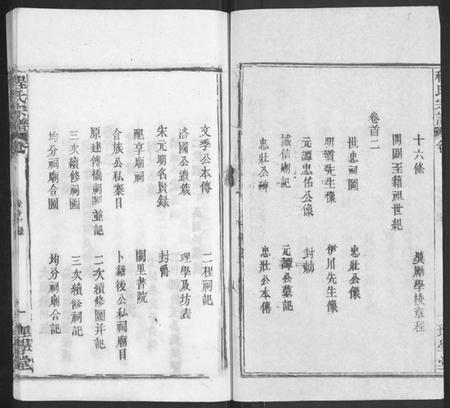 程氏宗譜
十六條
奠雁學校章程
開闢至藉祖世紀
卷首二
世忠祠圖
忠壯公像
明道先生像
伊川先生像
元譚忠佑公像
封勅
誠信廟記
元譚公墓記
忠壯公碑
忠壯公本傳
理學堂
文季公本傳
二程祠記
洛國公遺蹟
理學及坊表
朱元明名賢錄
封爵
配享廟祠
闕里書院
合族公私案目
卜籍後公私祠廟目
原述傅橋祠圖並記
二次續修圖并記
三次續修祠圖
三次續修祠記
均分祠廟合圖
均分祠廟合記
程氏宗譜
一
理學堂